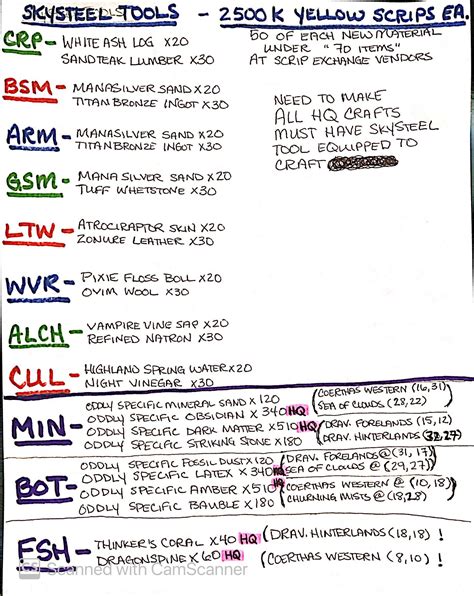 SKYSTEEL TOOLS - 2500K YELLOW SCRIPS EA.
50 OF EACH NEW MATERIAL
UNDER "70 ITEMS"
AT SCRIP EXCHANGE VENDORS
CRP - WHITE ASH LOG x20
SANDTEAK LUMBER x30
BSM - MANASILVER SAND x20
TITANBRONZE INGOT x30
NEED TO MAKE
ALL HQ CRAFTS
MUST HAVE SKYSTEEL
TOOL EQUIPPED TO
CRAFT
ARM - MANASILVER SAND x20
TITANBRONZE INGOT x30
GSM - MANASILVER SAND x20
TUFF WHETSTONE x30
LTW - ATROCIRAPTOR SKIN x20
ZONURE LEATHER x30
WVR - PIXIE FLOSS BOLL x20
OVIM WOOL x30
ALCH - VAMPIRE VINE SAP x20
REFINED NATRON x30
CUL - HIGHLAND SPRING WATER x20
NIGHT VINEGAR x30
MIN - ODDLY SPECIFIC MINERAL SAND x120
ODDLY SPECIFIC OBSIDIAN x340 HQ
ODDLY SPECIFIC DARK MATTER x510 HQ
ODDLY SPECIFIC STRIKING STONE x180
(COERTHAS WESTERN (16,31)
SEA OF CLOUDS (28,22)
(DRAV. FORELANDS (15,12)
DRAV. HINTERLANDS
BOT - ODDLY SPECIFIC FOSSIL DUST x120
ODDLY SPECIFIC LATEX x340 HQ
ODDLY SPECIFIC AMBER x510 HQ
ODDLY SPECIFIC BAUBLE x180
(DRAV. FORELANDS @ (31,17)
SEA OF CLOUDS @ (29,27)
(COERTHAS WESTERN @ (10,18)
CHURNING MISTS @ (18,28)
FSH - THINKER'S CORAL x40 HQ (DRAV. HINTERLANDS (18,18) !
DRAGONSPINE x60 HQ (COERTHAS WESTERN (8,10) !
CS Scanned with CamScanner